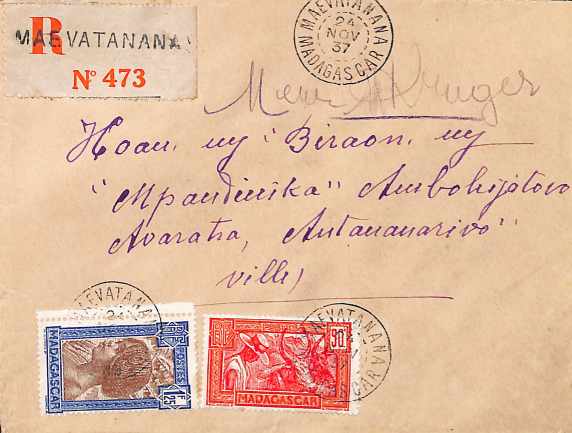 R
MAEVATANANA
N° 473
MAEVATANANA
24
NOV
37
MADAGASCAR
Kruger
Hoan. ny "Biraon. ny
"Mpandinika" Ambohijatovo
Avaratra, Antananarivo"
ville
MAEVATANANA
24
POSTES
MADAGASCAR
1F25
50c
MADAGASCAR
MAEVATANANA